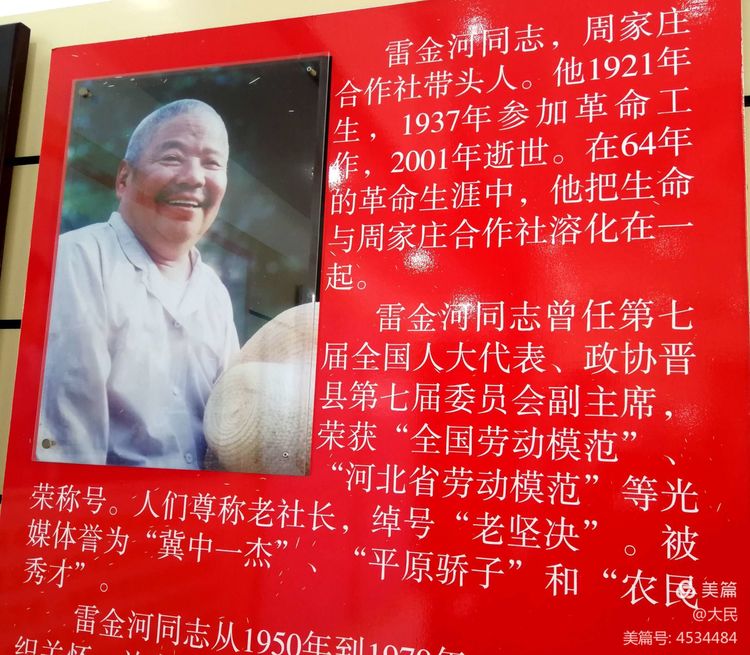 雷金河同志，周家庄
合作社带头人。他1921年
生，1937年参加革命工
作，2001年逝世。在64年
的革命生涯中，他把生命
与周家庄合作社溶化在一
起。
雷金河同志曾任第七
届全国人大代表、政协晋
县第七届委员会副主席，
荣获“全国劳动模范”、
“河北省劳动模范”等光
荣称号。人们尊称老社长，绰号“老坚决”。被
媒体誉为“冀中一杰”、“平原骄子”和“农民
秀才”。
雷金河同志从1950年到1979年
组关怀
美篇
@大民
美篇号: 4534484